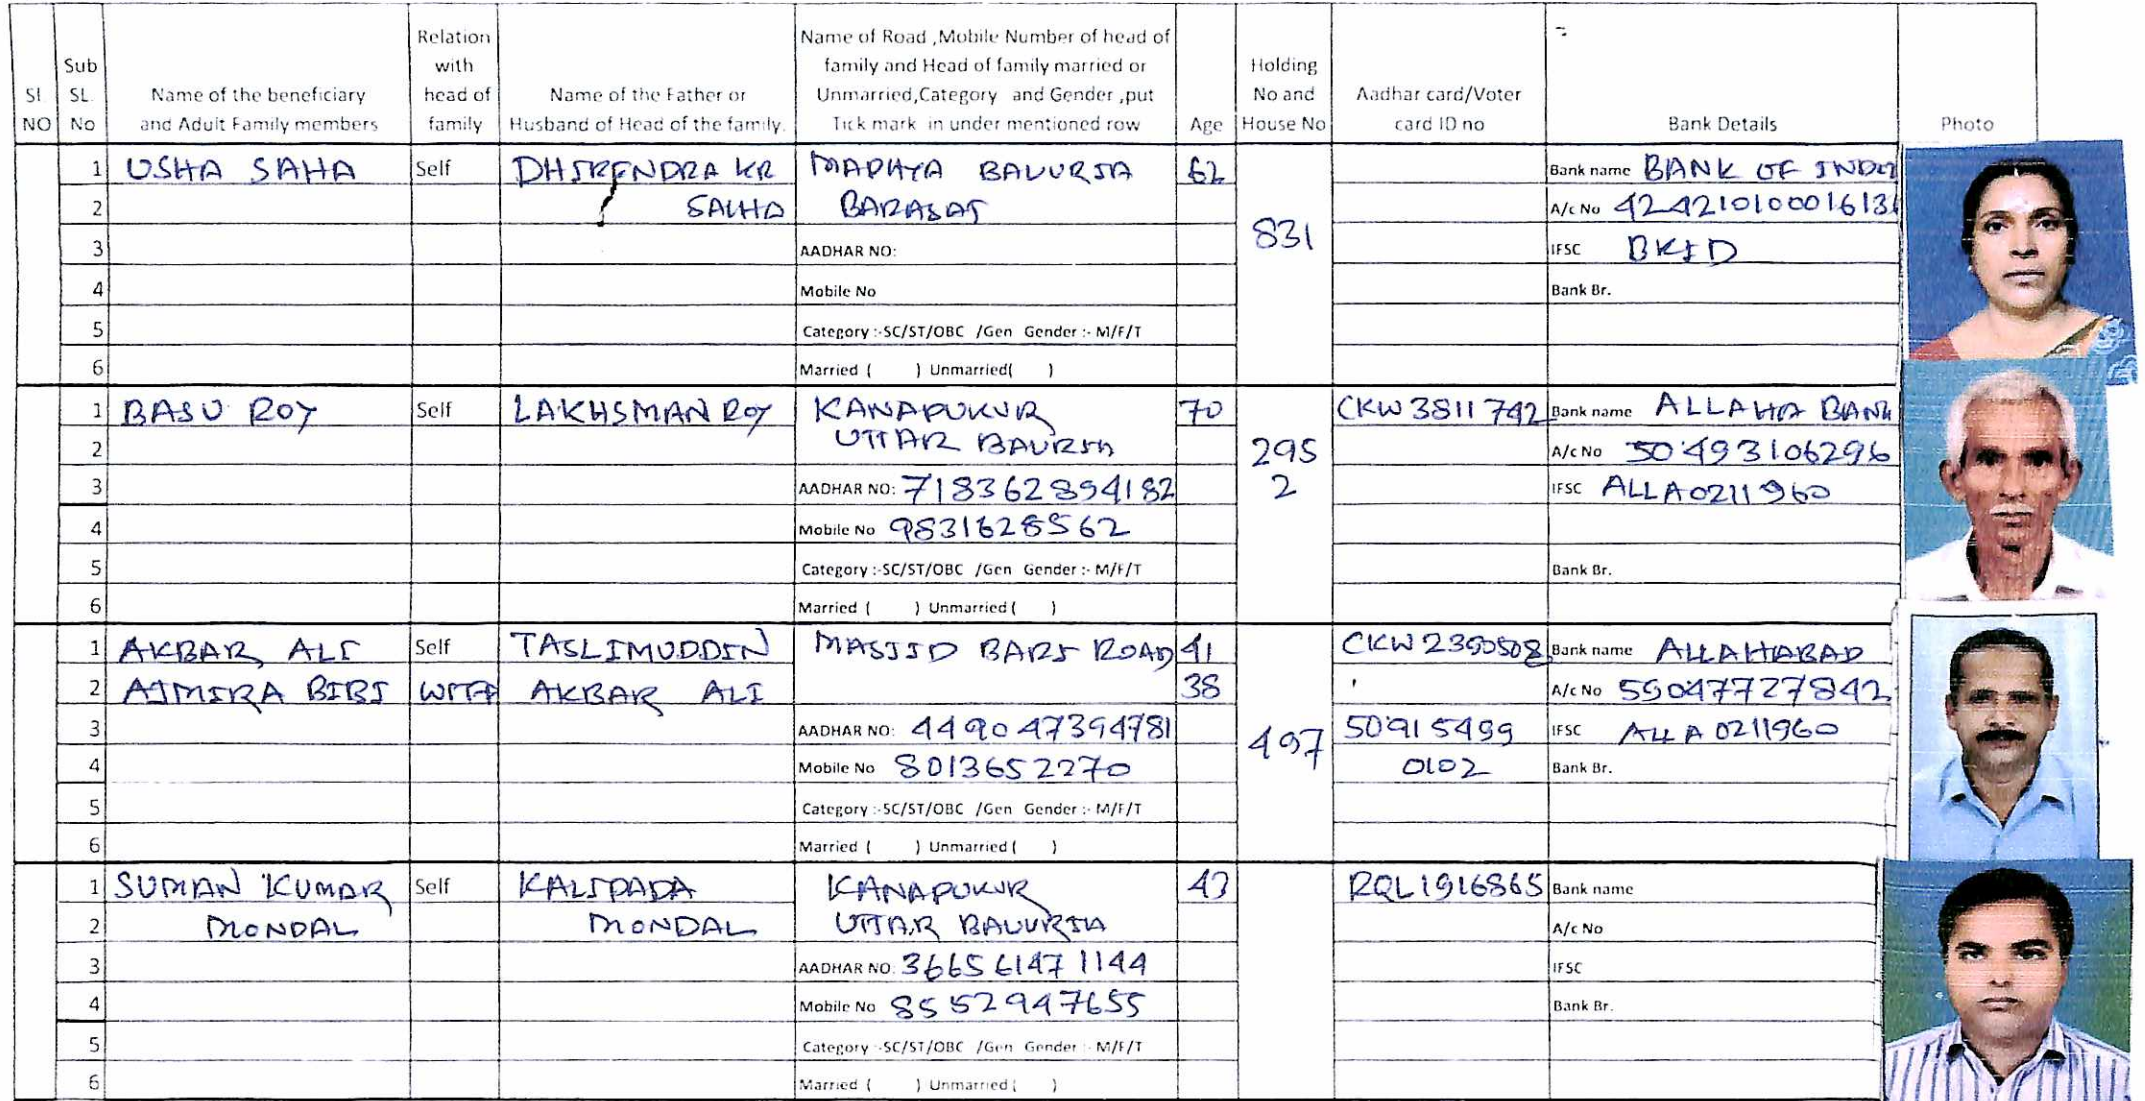 Sl NO
Sub SL. No
Name of the beneficiary and Adult Family members
Relation with head of family
Name of the Father or Husband of Head of the family.
Name of Road ,Mobile Number of head of family and Head of family married or Unmarried,Category and Gender ,put Tick mark in under mentioned row
Age
Holding No and House No
Aadhar card/Voter card ID no
Bank Details
Photo
1 USHA SAHA Self DHIRENDRA KR MADHYA BAVURIA 62 Bank name BANK OF INDIA
2 SAHA BARASAT 831 A/c No 424210100016131
3 AADHAR NO: IFSC BKID
4 Mobile No Bank Br.
5 Category :-SC/ST/OBC /Gen Gender :- M/F/T
6 Married ( ) Unmarried( )
1 BASU ROY Self LAKHSMAN ROY KANAPUKUR 70 CKW3811742 Bank name ALLAHA BANK
2 UTTAR BAURIA 295 A/c No 50493106296
3 AADHAR NO: 718362894182 2 IFSC ALLA0211960
4 Mobile No 9831628562
5 Category :-SC/ST/OBC /Gen Gender :- M/F/T Bank Br.
6 Married ( ) Unmarried ( )
1 AKBAR ALI Self TASLIMUDDIN MASJID BARI ROAD 41 CKW2390508 Bank name ALLAHABAD
2 AJMIRA BIBI AKBAR ALI 38 A/c No 59047727842
3 AADHAR NO: 449047394781 497 50915499 IFSC ALLA0211960
4 Mobile No 8013652270 0102 Bank Br.
5 Category :-SC/ST/OBC /Gen Gender :- M/F/T
6 Married ( ) Unmarried ( )
1 SUMAN KUMAR Self KALIPADA KANAPUKUR 43 RQL1916865 Bank name
2 MONDAL MONDAL UTTAR BAVURIA A/c No
3 AADHAR NO: 366561471144 IFSC
4 Mobile No 8552947655 Bank Br.
5 Category :-SC/ST/OBC /Gen Gender :- M/F/T
6 Married ( ) Unmarried ( )